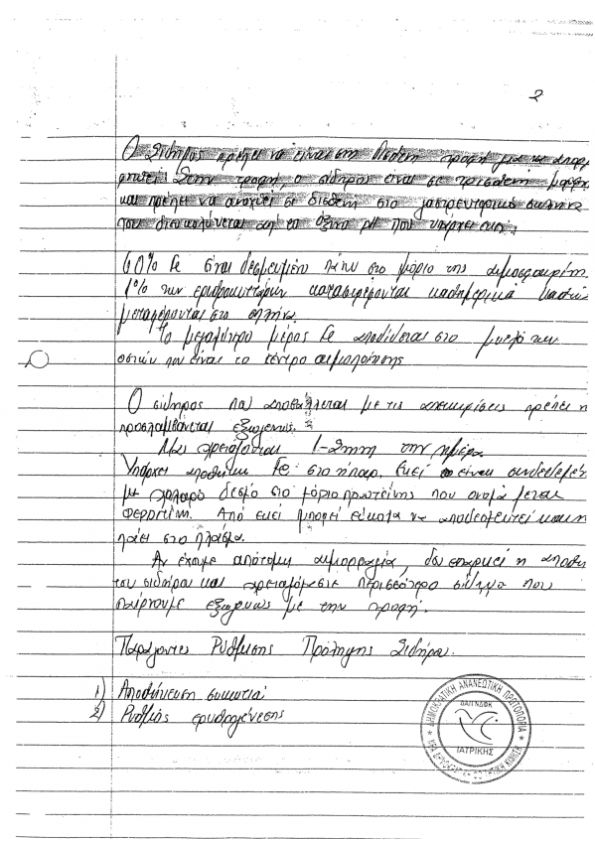 2
Ο Σίδηρος πρέπει να είναι στη δισθενή τροφή για να απορρ
φηθεί. Στην τροφή, ο σίδηρος είναι σε τρισθενή μορφή
και πρέπει να αναχθεί σε δισθενή στο γαστρεντερικό σωλήνα
που διευκολύνεται από το όξινο pH που υπάρχει εκεί.
60% Fe είναι δεσμευμένο πάνω στο μόριο της αιμοσφαιρίνης
1% των ερυθροκυττάρων καταστρέφονται καθημερινά
μεταφέρονται στο σπλήνα.
Το μεγαλύτερο μέρος Fe αποδίδεται στο μυελό των
οστών που είναι το κέντρο αιμοποίησης
Ο σίδηρος που αποβάλλεται με τις απεκκρίσεις πρέπει ν
προσλαμβάνεται εξωγενώς.
Μας χρειάζονται 1-2mg την ημέρα
Υπάρχει αποθήκη Fe στο ήπαρ. Εκεί είναι συνδεδεμέν
με χαλαρό δεσμό στο μόριο πρωτεΐνης που ονομάζεται
Φερριτίνη. Από εκεί μπορεί εύκολα να αποδεσμευτεί και ν
πάει στο πλάσμα.
Αν έχουμε απότομη αιμορραγία, δεν επαρκεί η αποθή
του σιδήρου και χρειαζόμαστε περισσότερο σίδηρο που
παίρνουμε εξωγενώς με την τροφή.
Παράγοντες Ρύθμισης Πρόσληψης Σιδήρου.
1) Αποθήκευση συκωτιά
2) Ρυθμός ερυθρογένεσης
ΔΗΜΟΚΡΑΤΙΚΗ ΑΝΑΝΕΩΤΙΚΗ ΠΡΩΤΟΠΟΡΙΑ
ΔΑΠ ΝΔΦΚ
ΙΑΤΡΙΚΗΣ